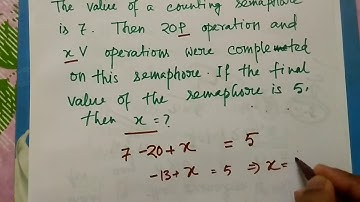 The value of a counting semaphore
is 7. Then 20P operation and
x V operations were completed
on this semaphore. If the final
value of the semaphore is 5.
then x = ?
7 - 20 + x = 5
-13 + x = 5 ⇒ x =